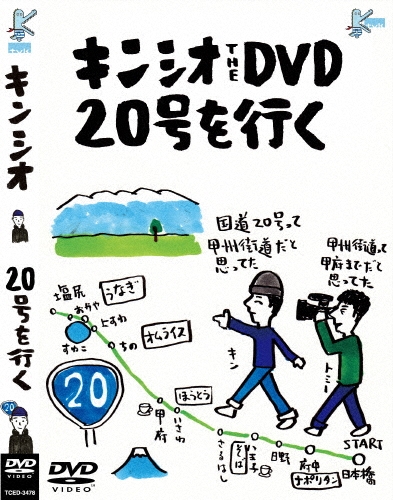 tvk
キンシオ
20号を行く
20
DVD
VIDEO
TCED-3478
tvk
キンシオ THE DVD
20号を行く
国道20号って
甲州街道だと
思ってた
甲州街道って
甲府までだと
思ってた
キン
トミー
塩尻
うなぎ
おかや
上すわ
すわこ
ちの
オムライス
20
ほうとう
甲府
いさわ
さるはし
そば
八王子
日野
府中
ナポリタン
START
日本橋
DVD
VIDEO